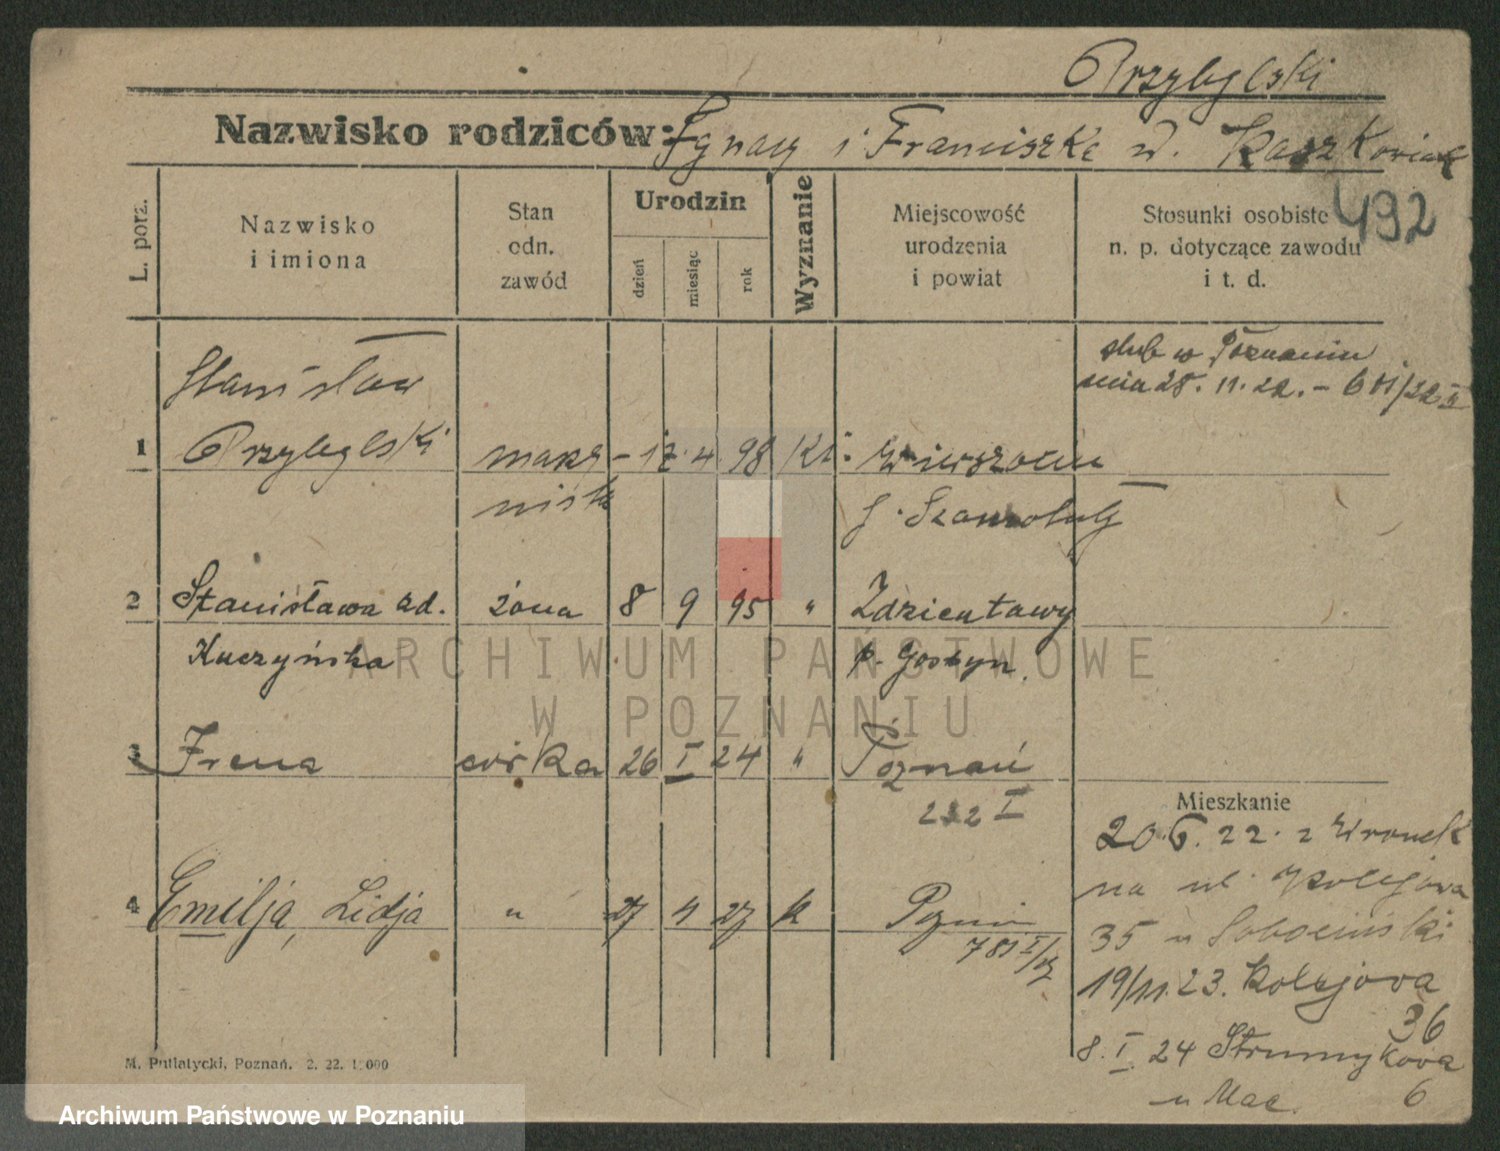 Przybylski
Nazwisko rodziców: Ignacy i Franciszka
492
L. porz.
Nazwisko i imiona
Stan odn. zawód
Urodzin
dzień
miesiąc
rok
Wyznanie
Miejscowość urodzenia i powiat
Stosunki osobiste n. p. dotyczące zawodu i t. d.
ślub w Poznaniu
dnia 28. 11. 22. -
Stanisław
1 Przybylski 4 98
p. Szamotuły
2 Stanisława zd. żona 8 9 95 " Zdzientawy
Kuczyńska p. Gostyn.
3 Irena córka 26 I 24 " Poznań
222 I
Mieszkanie
20.6.22. z Wronek
na ul.
35 u Sobociński
19/11.23. Kolejowa
36
8. I 24 Strumykowa
u Mac. 6
4 Emilja, Lidja " 27 4 27 k
M. Putiatycki, Poznań. 2. 22.
ARCHIWUM PAŃSTWOWE
W POZNANIU
Archiwum Państwowe w Poznaniu